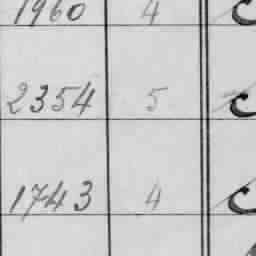 1960 4 C
2354 5 C
1743 4 C